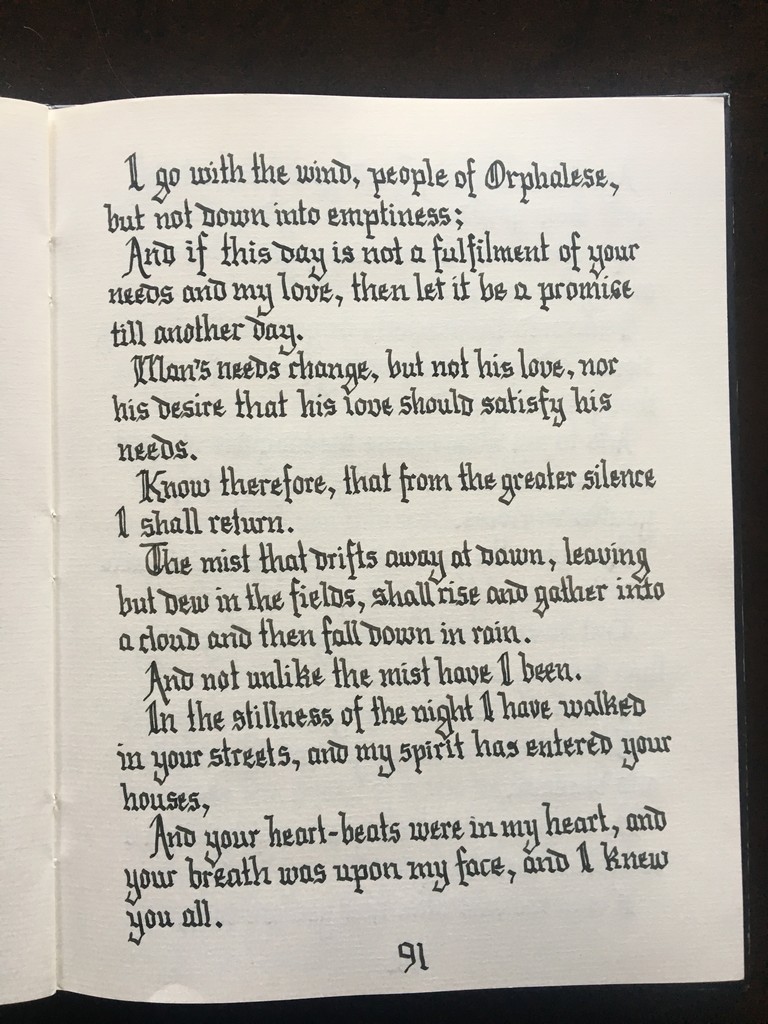 I go with the wind, people of Orphalese,
but not down into emptiness;
And if this day is not a fulfilment of your
needs and my love, then let it be a promise
till another day.
Man's needs change, but not his love, nor
his desire that his love should satisfy his
needs.
Know therefore, that from the greater silence
I shall return.
The mist that drifts away at dawn, leaving
but dew in the fields, shall rise and gather into
a cloud and then fall down in rain.
And not unlike the mist have I been.
In the stillness of the night I have walked
in your streets, and my spirit has entered your
houses,
And your heart-beats were in my heart, and
your breath was upon my face, and I knew
you all.
91